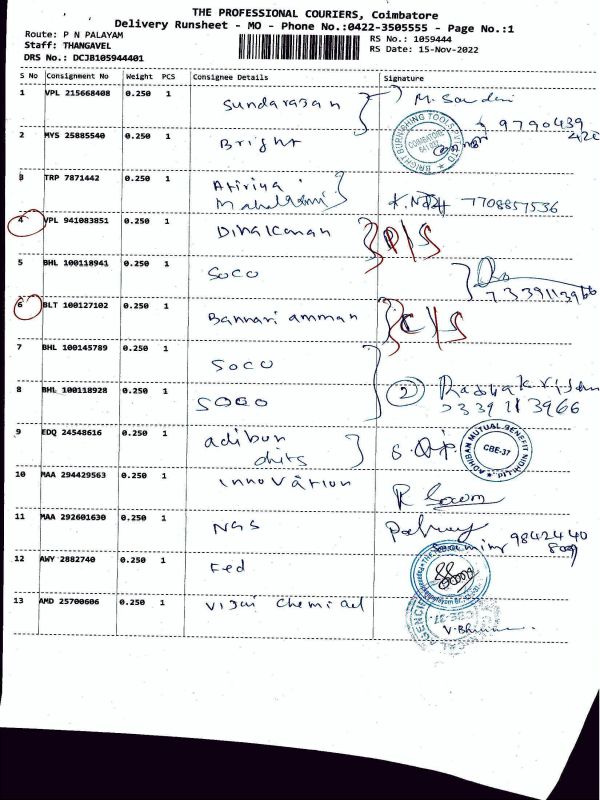 THE PROFESSIONAL COURIERS, Coimbatore
Delivery Runsheet - MO - Phone No.:0422-3505555 - Page No.:1
Route: P N PALAYAM
RS No.: 1059444
Staff: THANGAVEL
RS Date: 15-Nov-2022
DRS No.: DCJB105944401
S No Consignment No Weight PCS Consignee Details Signature
1 VPL 215668408 0.250 1 Sundarasan
9790439
420
2 MYS 25885540 0.250 1 Bright
BRIGHT BURNISHING TOOLS PVT LTD
COIMBATORE
3 TRP 7871442 0.250 1
Mahalaxmi 7708857536
4 VPL 941083851 0.250 1 Dinakaran P/S
5 BHL 100118941 0.250 1 SOCO
7339113966
6 BLT 100127102 0.250 1 Bannari amman C/S
7 BHL 100145789 0.250 1 SOCO
8 BHL 100118928 0.250 1 SOCO 2 Radhakrishnan
7339113966
9 EDQ 24548616 0.250 1 adiban
chits
ADHIBAN MUTUAL BENEFIT NIDHI LTD
CBE-37
10 MAA 294429563 0.250 1 Innovation
11 MAA 292601630 0.250 1 NGS
9842440
809
12 AWY 2882740 0.250 1 Fed
13 AMD 25700606 0.250 1 Vijai Chemical
CBE-37